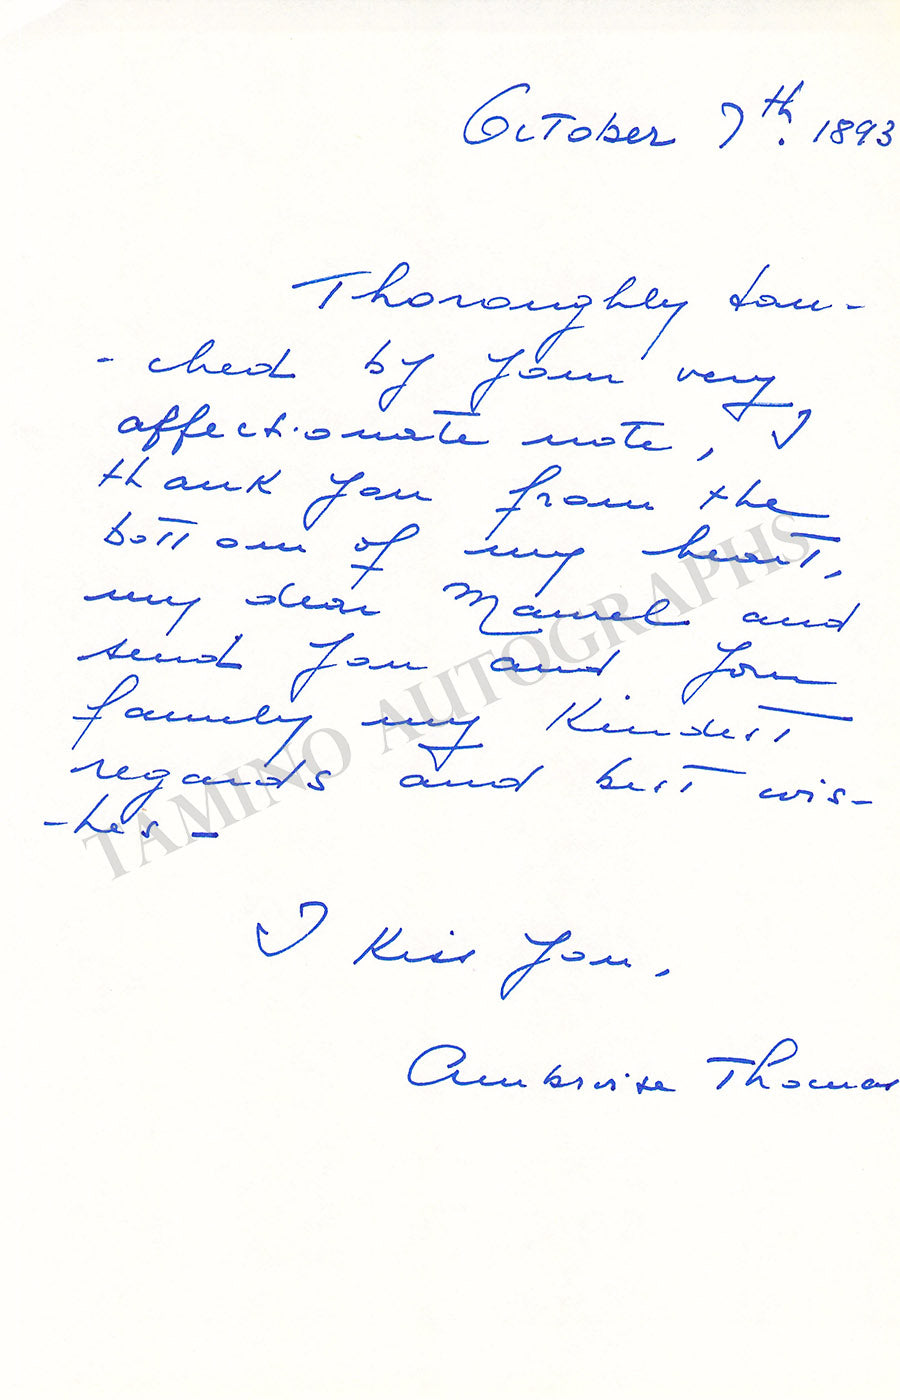 October 7th. 1893
Thoroughly tou-
-ched by your very
affectionate note, I
thank you from the
bottom of my heart,
my dear Manuel and
send you and your
family my kindest
regards and best wis-
-hes -
I kiss you,
Ambroise Thomas
TAMINO AUTOGRAPHS